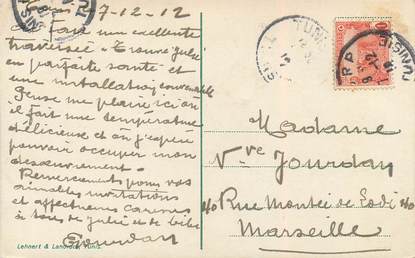 7-12-12
Fais une excellente
traversée Trouve Julie
en parfaite santé et
une installation convenable
Pense me plaire ici où
il fait une température
délicieuse et où j'espère
pouvoir occuper mon
désœuvrement.
Remerciements pour vos
aimables invitations
et affectueuses caresses
à tous de Julie et de bébé
Gourdan
Lehnert & Landrock, Tunis.
Madame
Vve Jourdan
40 Rue Montée de Lodi 40
Marseille